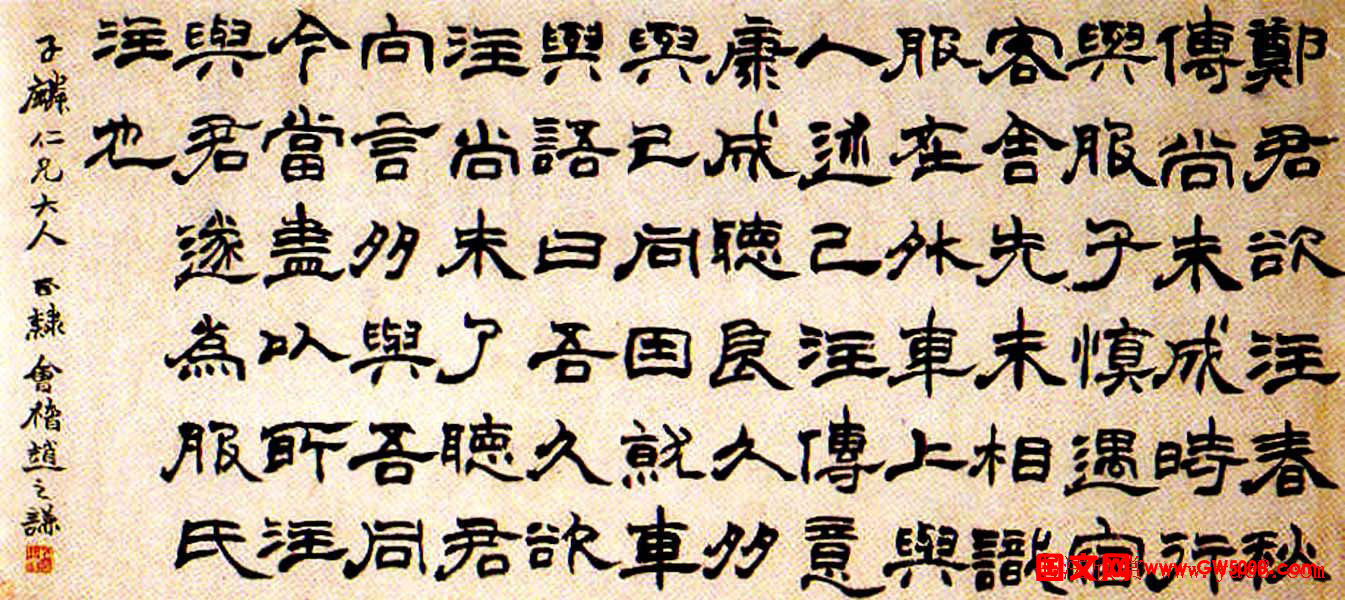 鄭君欲注春秋
傳尚未成時行
與服子慎遇宿
客舍先未相識
服在外車上與
人述己注傳意
康成聽良久多
與己同因就車
與語曰吾久欲
注尚未了聽君
向言多與吾同
今當盡以所注
與君遂為服氏
注也
子麟仁兄大人 隸 會稽趙之謙
图文网